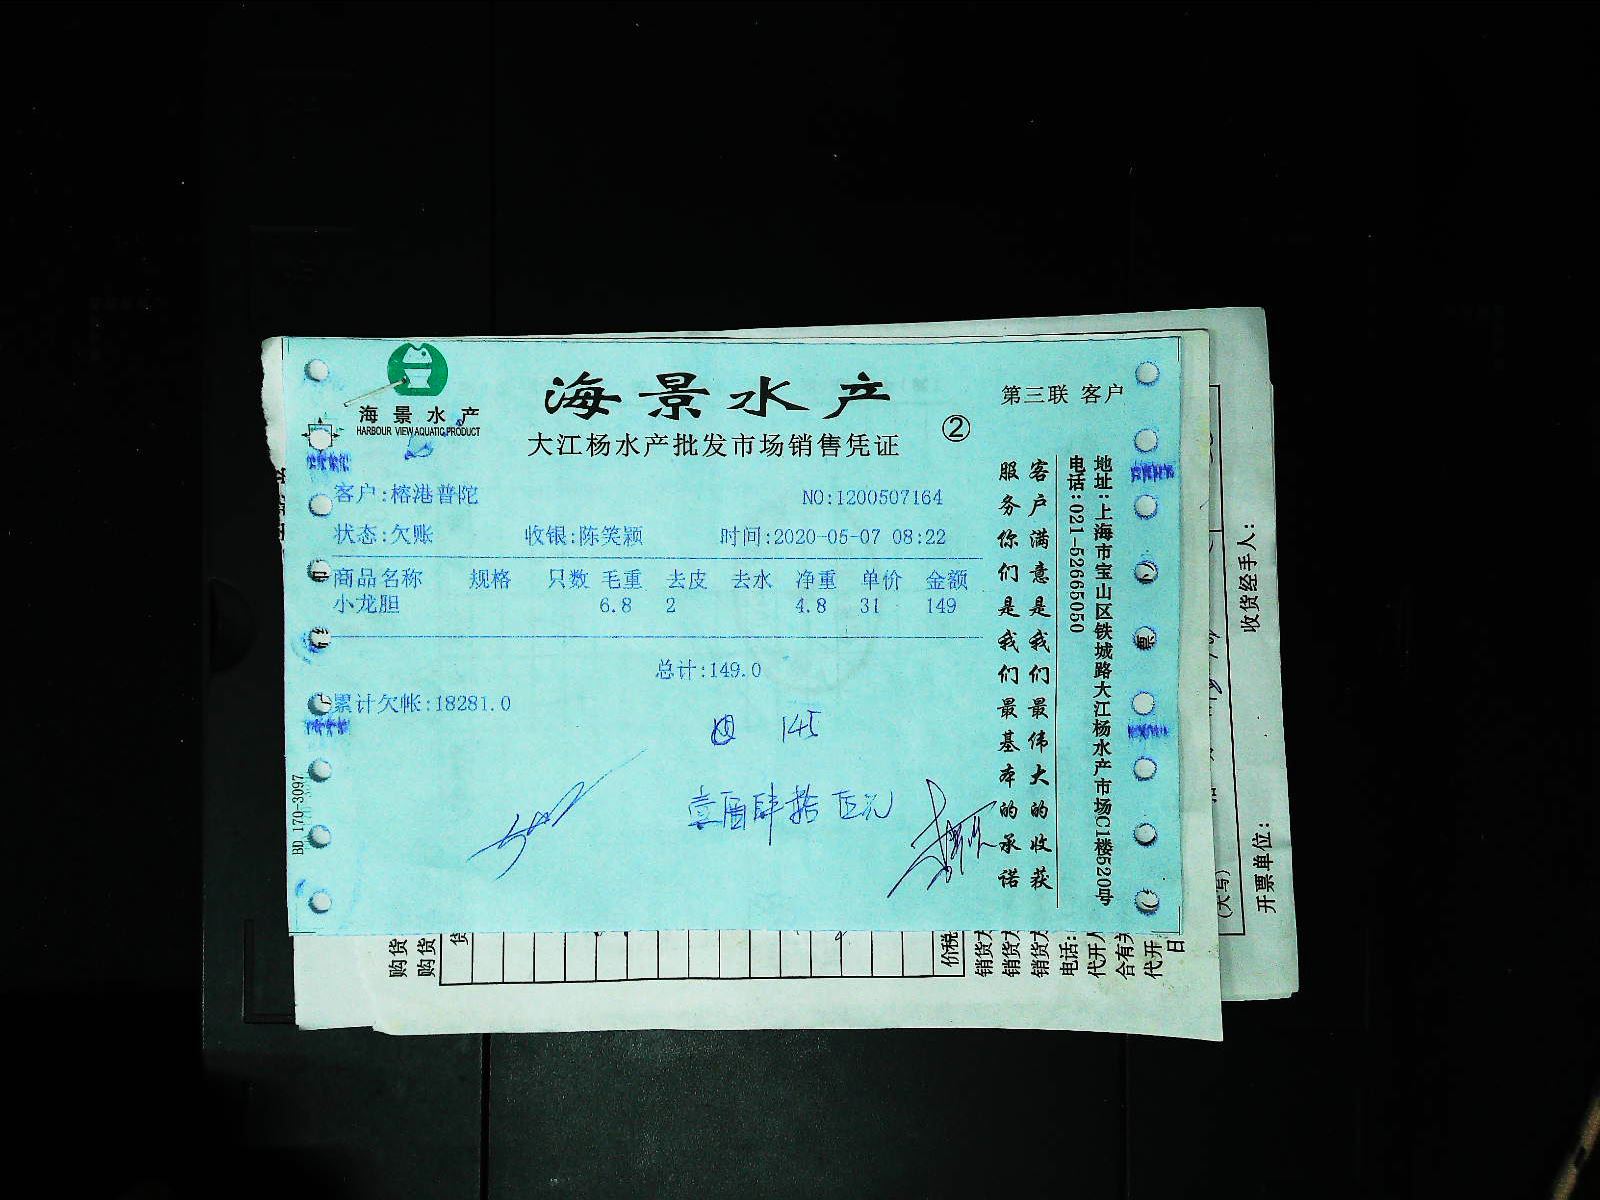 海景水产
HARBOUR VIEW AQUATIC PRODUCT
海景水产
大江杨水产批发市场销售凭证
②
第三联 客户
客户:榕港普陀
NO:1200507164
状态:欠账 收银:陈笑颖 时间:2020-05-07 08:22
商品名称 规格 只数 毛重 去皮 去水 净重 单价 金额
小龙胆 6.8 2 4.8 31 149
总计:149.0
累计欠帐:18281.0
145
壹佰肆拾伍元
客户满意是我们最伟大的收获
服务你们是我们最基本的承诺
地址:上海市宝山区铁城路大江杨水产市场C1楼520号
电话:021-52665050
BD 170-3097
购货
购货
货
价税
销货方
销货方
销货方
电话:
代开人
合有关
代开
日
(大写)
收货经手人:
开票单位: